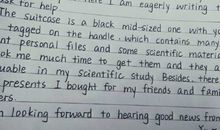 ask for help. Here I am eagerly writing t
The suitcase is a black mid-sized one with yo
tagged on the handle, which contains many
nt personal files and some scientific materia
ok me much time to get them and they a
uable in my scientific study. Besides, there
presents I bought for my friends and fami
ers.
looking forward to hearing good news from